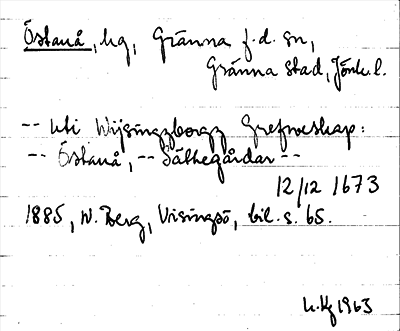 Östanå, hg, Gränna f.d. sn,
Gränna stad, Jönk. l.
-- uti Wijsingzborgz Grefweskap:
-- Östanå, -- Säthegårdar --
12/12 1673
1885, W. Berg, Visingsö, bil. s. 65.
1963